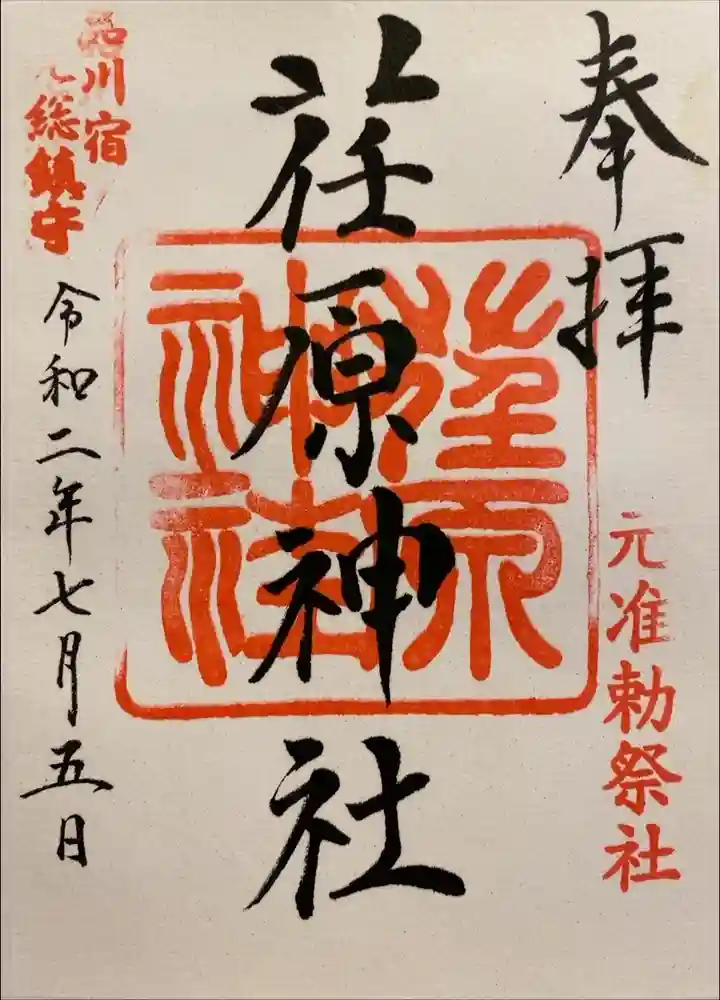 奉拝
元准勅祭社
荏原神社
荏原神社
品川宿
総鎮守
令和二年七月五日